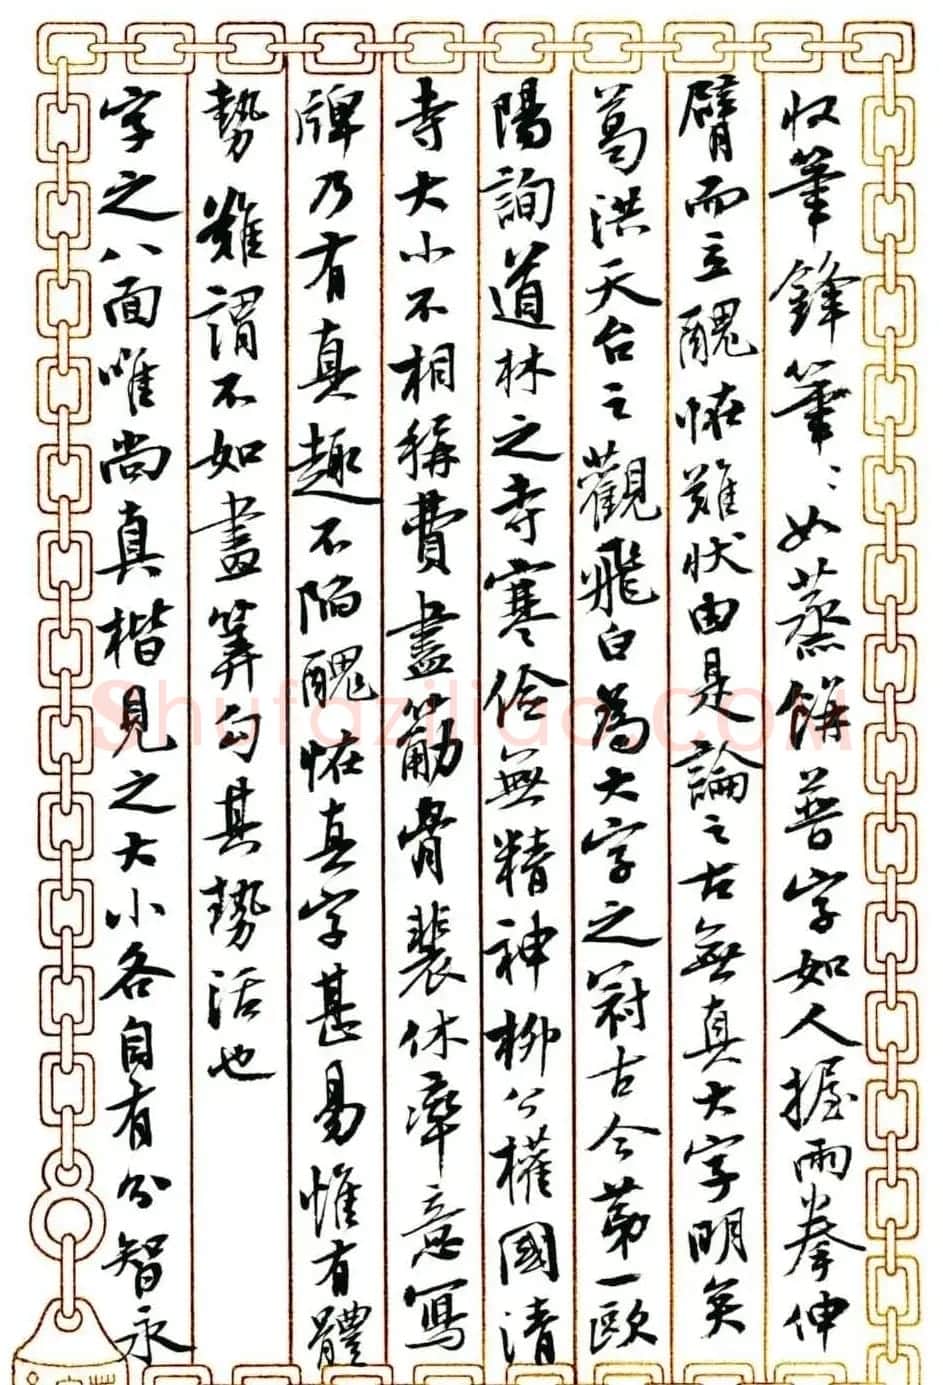 收筆鋒筆〻如蒸餅普字如人握兩拳伸
臂而立醜怪難狀由是論之古無真大字明矣
葛洪天台之觀飛白為大字之冠古今第一歐
陽詢道林之寺寒儉無精神柳公權國清
寺大小不相稱費盡筋骨裴休率意寫
牌乃有真趣不陷醜怪真字甚易惟有體
勢難謂不如畫筭勻其勢活也
字之八面唯尚真楷見之大小各自有分智永
Shufaziliao.COM